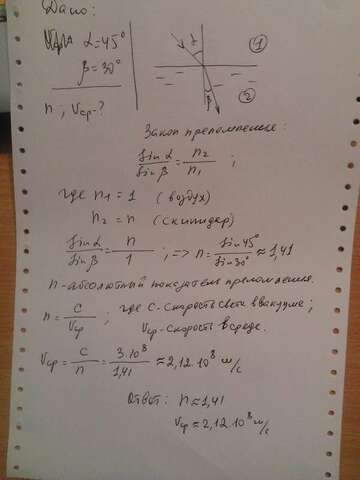 Дано:
α=45°
β=30°
n ; Vср-?
α
1
β
2
Закон преломления:
sin α / sin β = n2 / n1 ;
где n1 = 1 (воздух)
n2 = n (скипидар)
sin α / sin β = n / 1 ; => n = sin 45° / sin 30° ≈ 1,41
n - абсолютный показатель преломления.
n = c / Vср ; где c - скорость света в вакууме ;
Vср - скорость в среде.
Vср = c / n = 3·10⁸ / 1,41 ≈ 2,12·10⁸ м/с
Ответ: n ≈ 1,41
Vср ≈ 2,12·10⁸ м/с